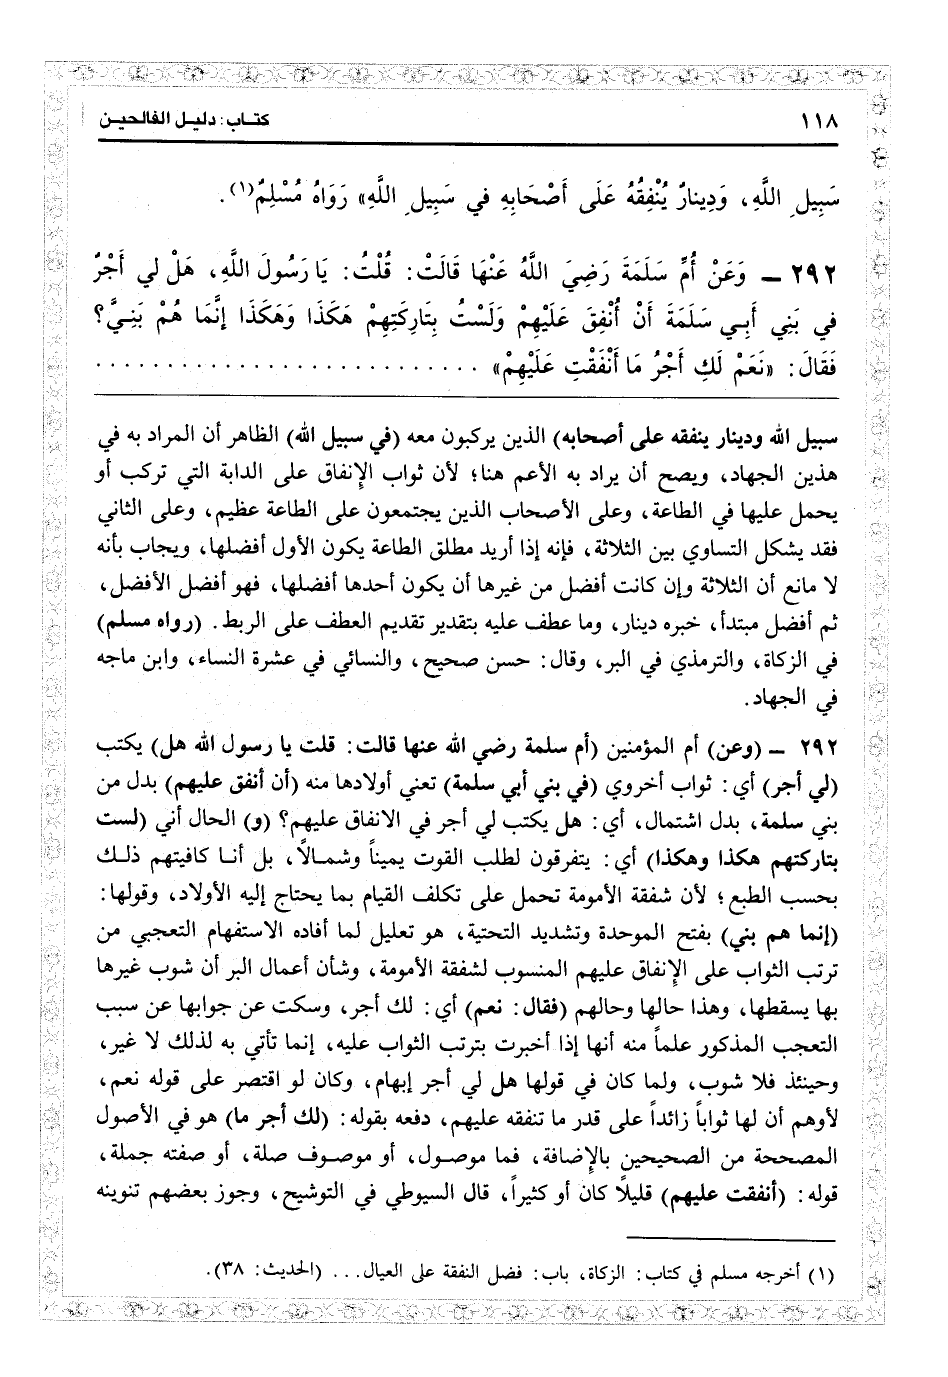 ١١٨ كتاب: دليل الفالحين
سَبِيلِ اللَّهِ، وَدِينَارٌ يُنْفِقُهُ عَلَى أَصْحَابِهِ في سَبِيلِ اللَّهِ» رَوَاهُ مُسْلِمٌ(١).
٢٩٢ ــ وَعَنْ أُمِّ سَلَمَةَ رَضِيَ اللَّهُ عَنْهَا قَالَتْ: قُلْتُ: يَا رَسُولَ اللَّهِ، هَلْ لي أَجْرٌ
في بَنِي أَبِي سَلَمَةَ أَنْ أُنْفِقَ عَلَيْهِمْ وَلَسْتُ بِتَارِكَتِهِمْ هَكَذَا وَهَكَذَا إِنَّمَا هُمْ بَنِيَّ؟
فَقَالَ: «نَعَمْ لَكِ أَجْرُ مَا أَنْفَقْتِ عَلَيْهِمْ» . . . . . . . . . . . . . . . . . . . . . . . . . .
سبيل الله ودينار ينفقه على أصحابه) الذين يركبون معه (في سبيل الله) الظاهر أن المراد به في
هذين الجهاد، ويصح أن يراد به الأعم هنا؛ لأن ثواب الإِنفاق على الدابة التي تركب أو
يحمل عليها في الطاعة، وعلى الأصحاب الذين يجتمعون على الطاعة عظيم، وعلى الثاني
فقد يشكل التساوي بين الثلاثة، فإنه إذا أريد مطلق الطاعة يكون الأول أفضلها، ويجاب بأنه
لا مانع أن الثلاثة وإن كانت أفضل من غيرها أن يكون أحدها أفضلها، فهو أفضل الأفضل،
ثم أفضل مبتدأ، خبره دينار، وما عطف عليه بتقدير تقديم العطف على الربط. (رواه مسلم)
في الزكاة، والترمذي في البر، وقال: حسن صحيح، والنسائي في عشرة النساء، وابن ماجه
في الجهاد.
٢٩٢ ــ (وعن) أم المؤمنين (أم سلمة رضي الله عنها قالت: قلت يا رسول الله هل) يكتب
(لي أجر) أي: ثواب أخروي (في بني أبي سلمة) تعني أولادها منه (أن أنفق عليهم) بدل من
بني سلمة، بدل اشتمال، أي: هل يكتب لي أجر في الانفاق عليهم؟ (و) الحال أني (لست
بتاركتهم هكذا وهكذا) أي: يتفرقون لطلب القوت يميناً وشمالاً، بل أنا كافيتهم ذلك
بحسب الطبع؛ لأن شفقة الأمومة تحمل على تكلف القيام بما يحتاج إليه الأولاد، وقولها:
(إنما هم بني) بفتح الموحدة وتشديد التحتية، هو تعليل لما أفاده الاستفهام التعجبي من
ترتب الثواب على الإِنفاق عليهم المنسوب لشفقة الأمومة، وشأن أعمال البر أن شوب غيرها
بها يسقطها، وهذا حالها وحالهم (فقال: نعم) أي: لك أجر، وسكت عن جوابها عن سبب
التعجب المذكور علماً منه أنها إذا أخبرت بترتب الثواب عليه، إنما تأتي به لذلك لا غير،
وحينئذ فلا شوب، ولما كان في قولها هل لي أجر إبهام، وكان لو اقتصر على قوله نعم،
لأوهم أن لها ثواباً زائداً على قدر ما تنفقه عليهم، دفعه بقوله: (لك أجر ما) هو في الأصول
المصححة من الصحيحين بالإِضافة، فما موصول، أو موصوف صلة، أو صفته جملة،
قوله: (أنفقت عليهم) قليلاً كان أو كثيراً، قال السيوطي في التوشيح، وجوز بعضهم تنوينه
(١) أخرجه مسلم في كتاب: الزكاة، باب: فضل النفقة على العيال... (الحديث: ٣٨).